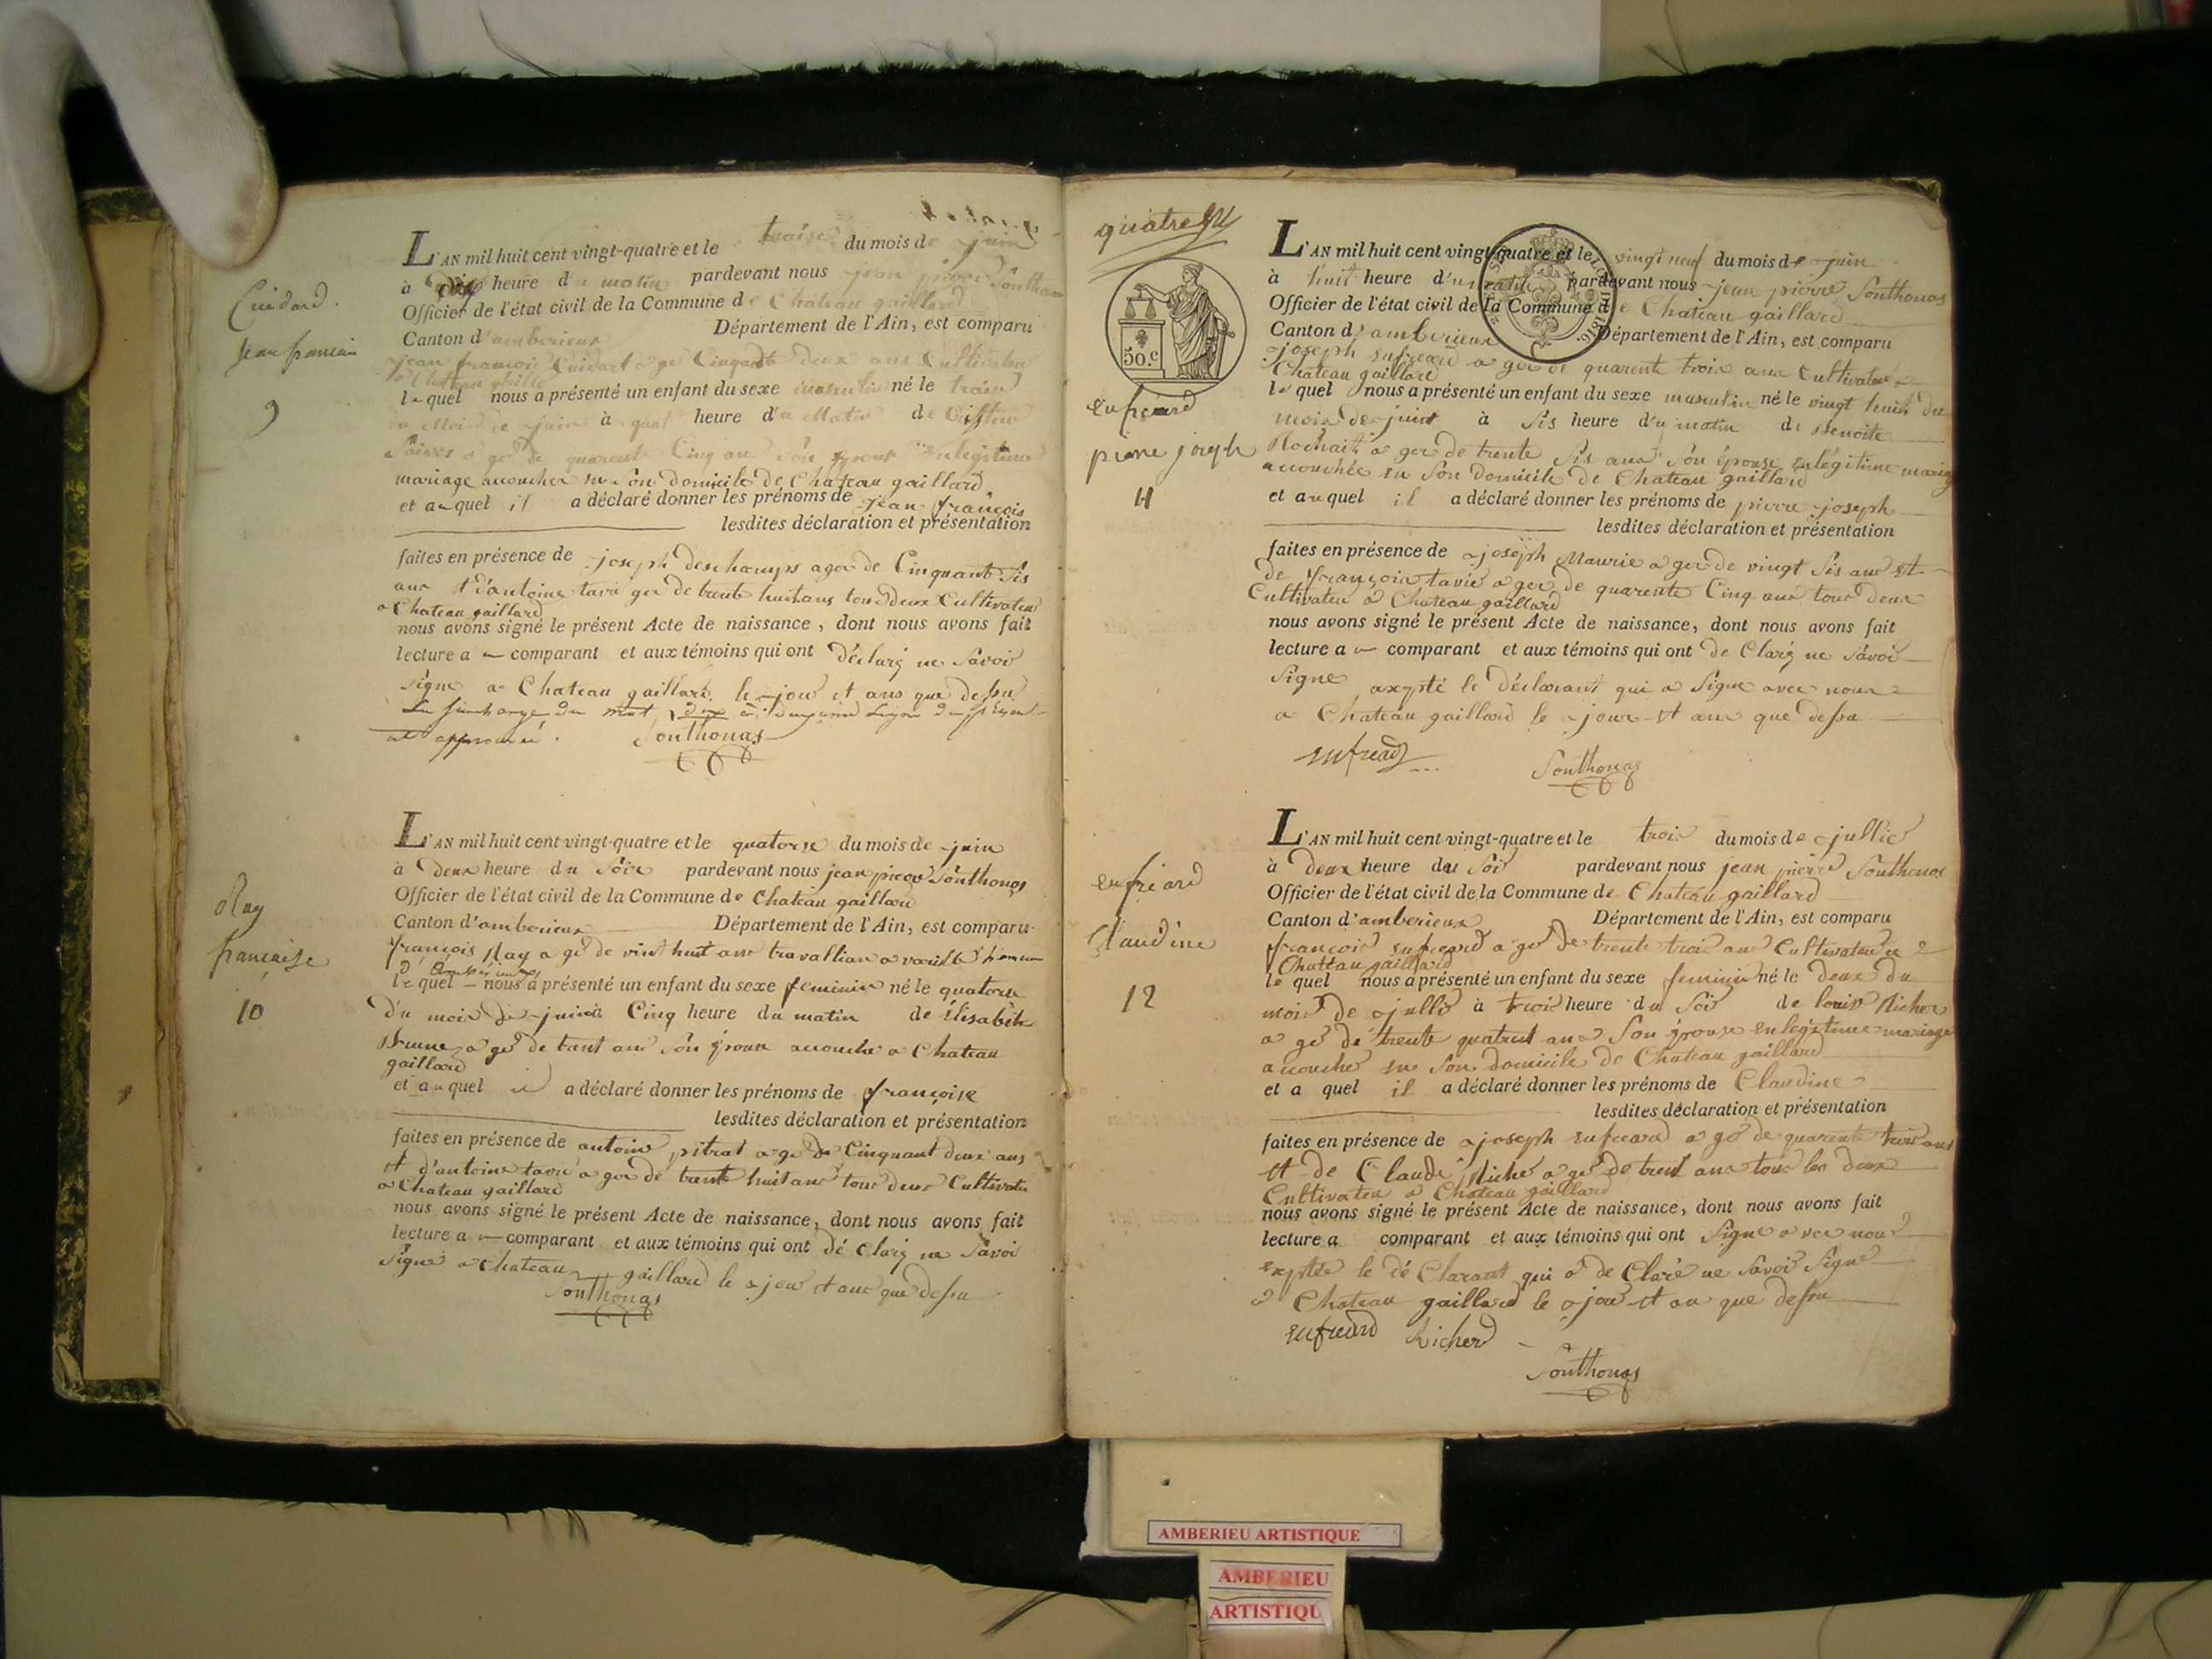 Jean françois
9
L'AN mil huit cent vingt-quatre et le treise du mois de juin
à dix heure du matin pardevant nous jean pierre Sonthonas
Officier de l'état civil de la Commune de Chateau gaillard
Canton d'amberieux Département de l'Ain, est comparu
jean françois Cuidart agé Cinquant deux ans Cultivateu
a Chateau gaillard
le quel nous a présenté un enfant du sexe masculin né le treise
du Mois de juin à heure du Matin de
agé de quarente Cinq ans Son épouse en legitime
mariage accoucher en Son domicile de Chateau gaillard
et auquel il a déclaré donner les prénoms de jean françois
lesdites déclaration et présentation
faites en présence de joseph deschamps agée de Cinquant Sis
ans et d'antoine tavie gee de trente huit ans tous deux Cultivateu
a Chateau gaillard
nous avons signé le présent Acte de naissance, dont nous avons fait
lecture a comparant et aux témoins qui ont déclaré ne Savoi
Signe a Chateau gaillard le jour et ans que dessu
La surcharge du mot dix à ligne du présent
approuvé. Sonthonas
Ray
française
10
L'AN mil huit cent vingt-quatre et le quatorse du mois de juin
à deux heure du Soir pardevant nous jean pierre Sonthonas
Officier de l'état civil de la Commune de Chateau gaillard
Canton d'amberieux Département de l'Ain, est comparu
françois Ray a gé de vint huit ans a
d'amberieux
le quel nous a présenté un enfant du sexe feminin né le quatorse
du mois de juin à Cinq heure du matin de Élisabéth
a gé de trant ans Son épouse accouché a Chateau
gaillard
et auquel il a déclaré donner les prénoms de françoise
lesdites déclaration et présentation
faites en présence de antoine pitrat a gé de Cinquant deux ans
et d'antoine tavie a gée de trente huit ans tous deux Cultivateu
a Chateau gaillard
nous avons signé le présent Acte de naissance, dont nous avons fait
lecture a comparant et aux témoins qui ont dé claré ne Savoi
Signe a Chateau gaillard le jour et ans que dessu
Sonthonas
quatre
50.c
enfreard
pierre joseph
11
L'AN mil huit cent vingt-quatre et le vingt neuf du mois de juin
à huit heure du matin pardevant nous jean pierre Sonthonas
Officier de l'état civil de la Commune de Chateau gaillard
Canton d'amberieux Département de l'Ain, est comparu
joseph enfreard a gée de quarente trois ans Cultivateu a
Chateau gaillard
le quel nous a présenté un enfant du sexe masculin né le vingt huit du
mois de juint à Sis heure du matin de Benoite
a gée de trente Sis ans Son épouse en légitime mariage
accouchée en Son domicile de Chateau gaillard
et auquel il a déclaré donner les prénoms de pierre joseph
lesdites déclaration et présentation
faites en présence de joseph Maurie a gée de vingt Sis ans et
de françois tavie a gée de quarente Cinq ans tous deux
Cultivateu a Chateau gaillard
nous avons signé le présent Acte de naissance, dont nous avons fait
lecture a comparant et aux témoins qui ont de Claré ne Savoi
Signe axepté le déclarant qui a Signe avec nous
a Chateau gaillard le jour et ans que dessu
enfreard Sonthonas
enfreard
Claudine
12
L'AN mil huit cent vingt-quatre et le trois du mois de jullie
à deux heure du Soi pardevant nous jean pierre Sonthonas
Officier de l'état civil de la Commune de Chateau gaillard
Canton d'amberieux Département de l'Ain, est comparu
françois enfreard a gé de trente trois ans Cultivateu a
Chateau gaillard
le quel nous a présenté un enfant du sexe feminin né le deux du
mois de jullie à trois heure du Soi de louise Richer
a gé de trente quatre ans Son épouse en legitime mariage
accouché en Son domicile de Chateau gaillard
et a quel il a déclaré donner les prénoms de Claudine
lesdites déclaration et présentation
faites en présence de joseph enfreard a gé de quarente trois ans
et de Claude Riche a gé de trent ans tous les deux
Cultivateu a Chateau gaillard
nous avons signé le présent Acte de naissance, dont nous avons fait
lecture a comparant et aux témoins qui ont Signe a vec nous
exptée le dé Clarant qui a de Claré ne Savoi Signe
a Chateau gaillard le jour et an que dessu
enfreard Richerd
Sonthonas
AMBERIEU ARTISTIQUE
AMBERIEU
ARTISTIQU